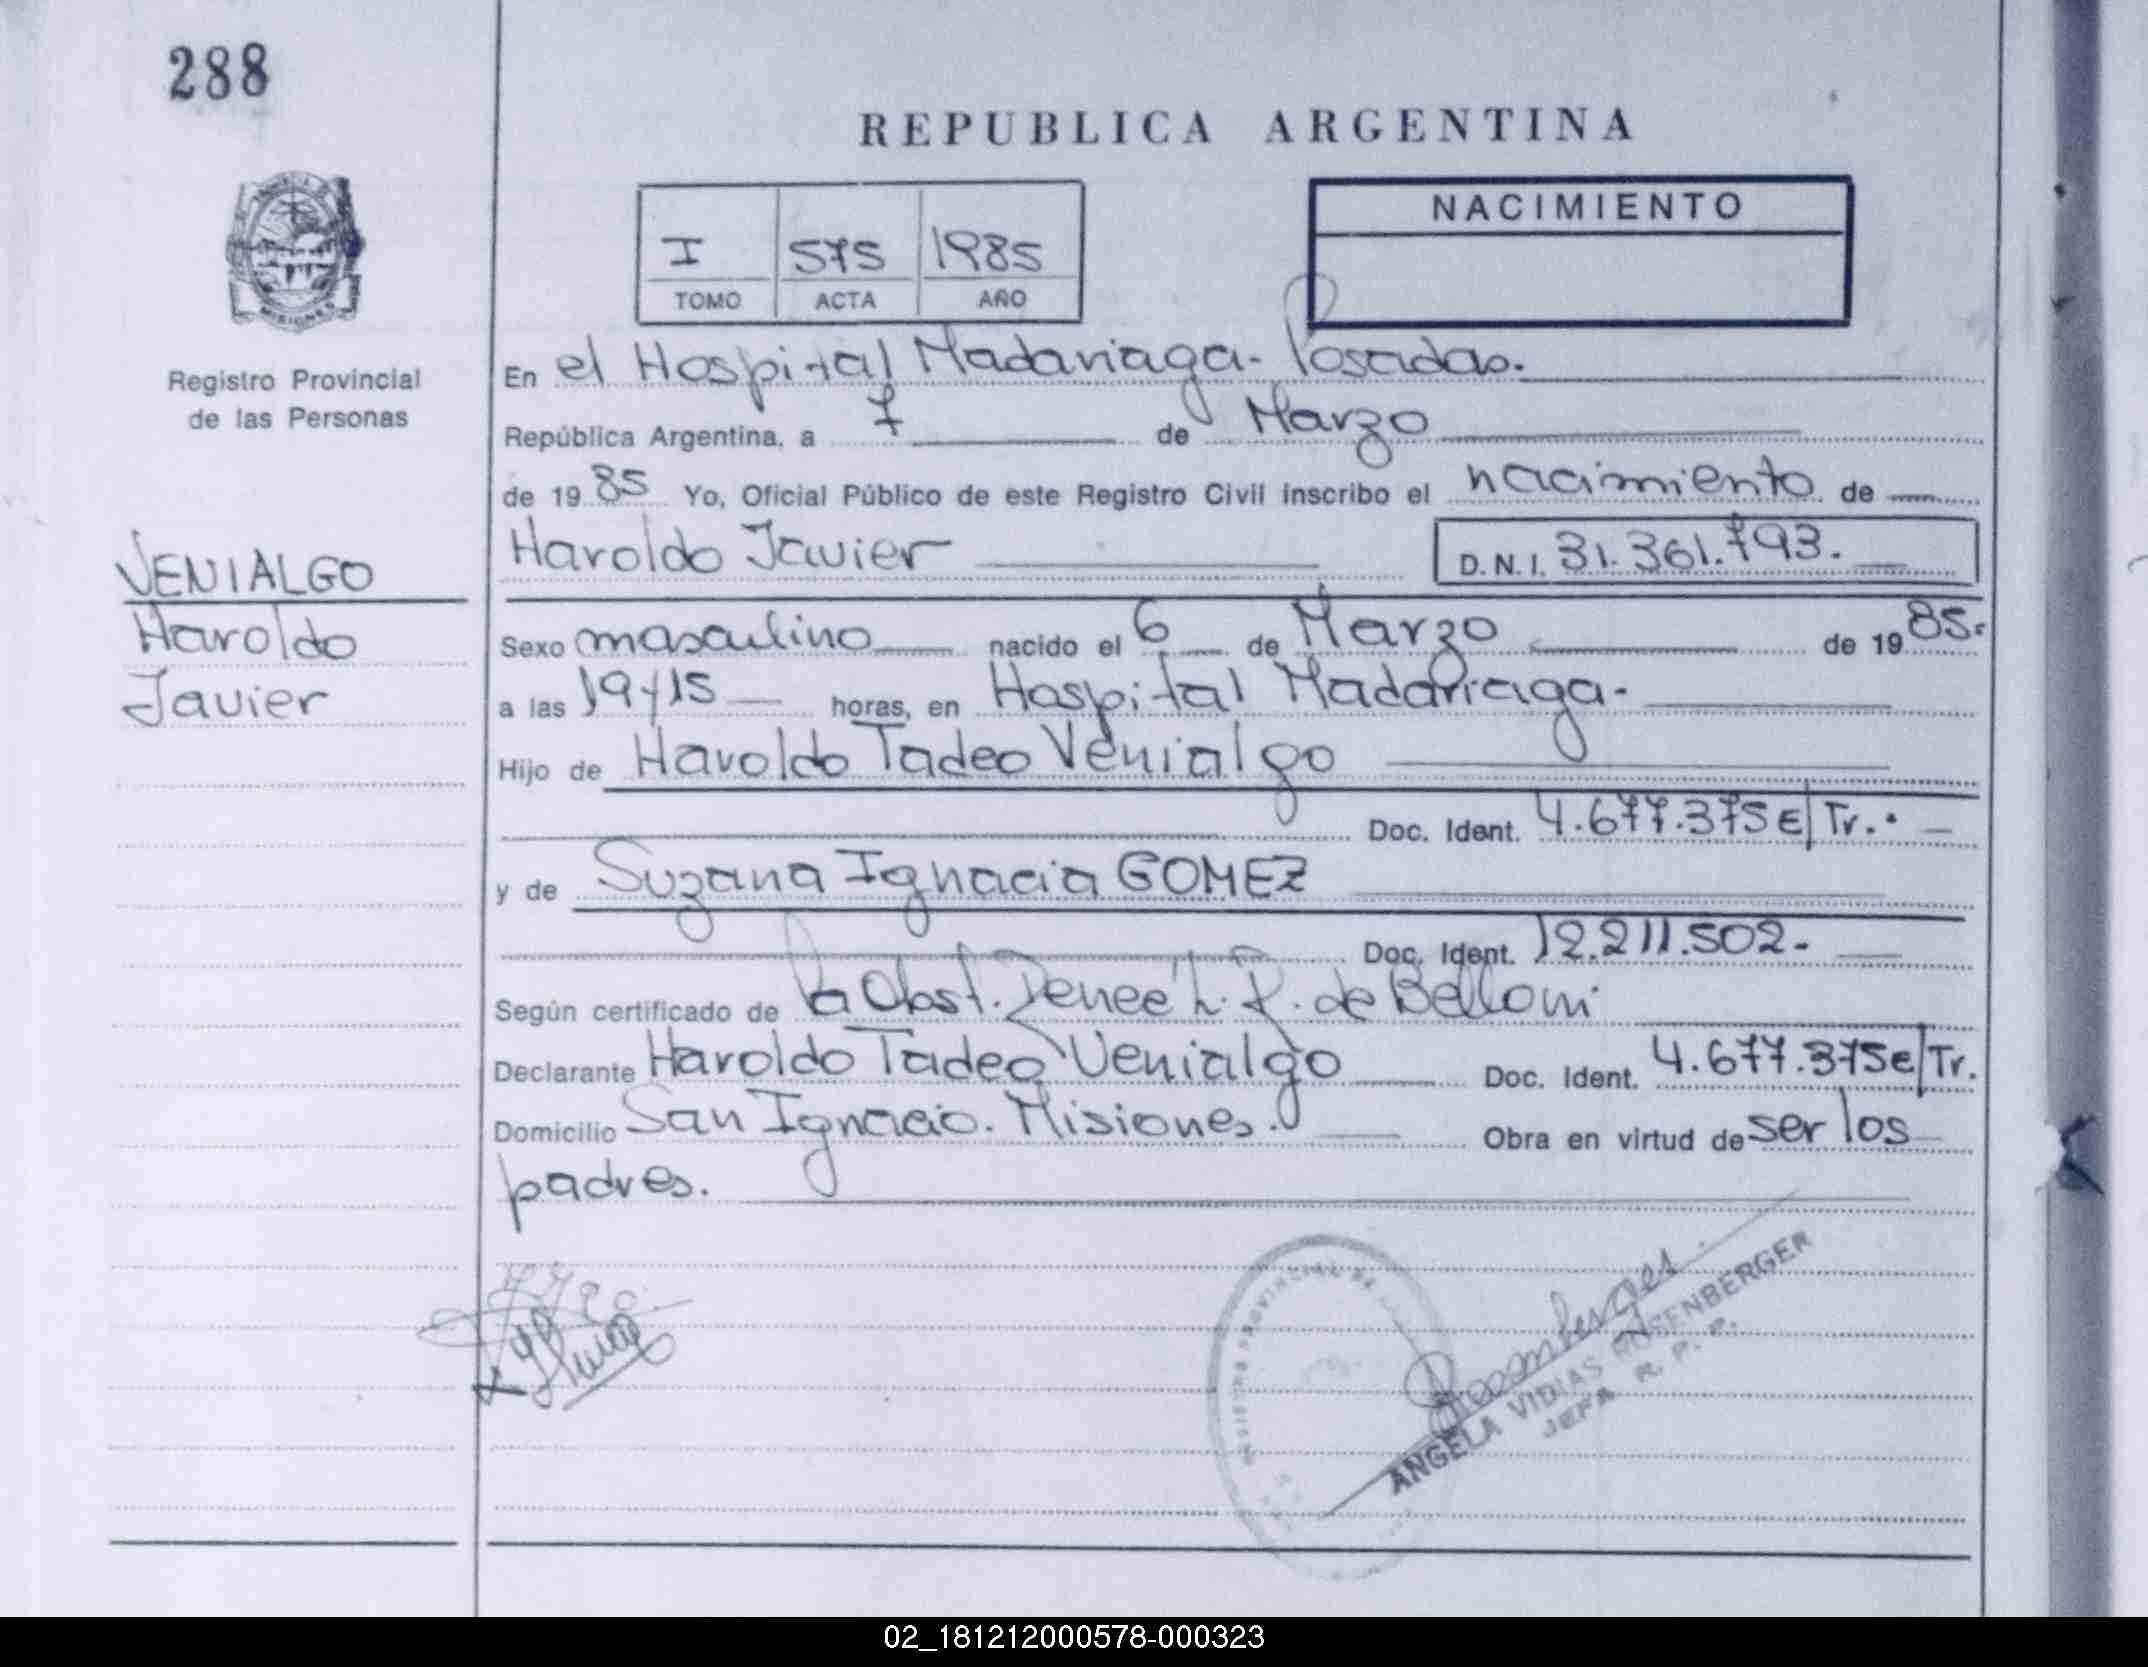 288
REPUBLICA ARGENTINA
NACIMIENTO
I 575 1985
TOMO ACTA AÑO
MISIONES
Registro Provincial
de las Personas
En el Hospital Madariaga - Posadas.
República Argentina, a 7 de Marzo
de 1985 Yo, Oficial Público de este Registro Civil inscribo el nacimiento de
Haroldo Javier D.N.I. 31.361.793.
VENIALGO
Haroldo
Javier
Sexo masculino nacido el 6 de Marzo de 1985.
a las 19y15 horas, en Hospital Madariaga -
Hijo de Haroldo Tadeo Venialgo
Doc. Ident. 4.677.375 E/Tr..
y de Suzana Ignacia GOMEZ
Doc. Ident. 12.211.502 -
Según certificado de la Obst. de Belloni
Declarante Haroldo Tadeo Venialgo Doc. Ident. 4.677.375 E/Tr.
Domicilio San Ignacio. Misiones. Obra en virtud de ser los
padres.
ANGELA VIDIAS ROSENBERGER
JEFA R. P. P.
02_181212000578-000323